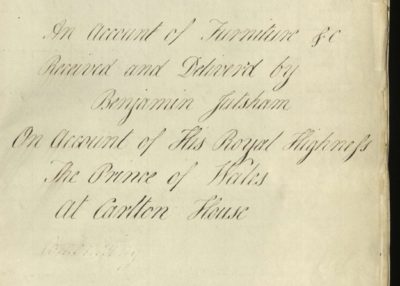 An Account of Furniture &c
Received and Deliver'd by
Benjamin Jutsham
On Account of His Royal Highneſs
The Prince of Wales
at Carlton House